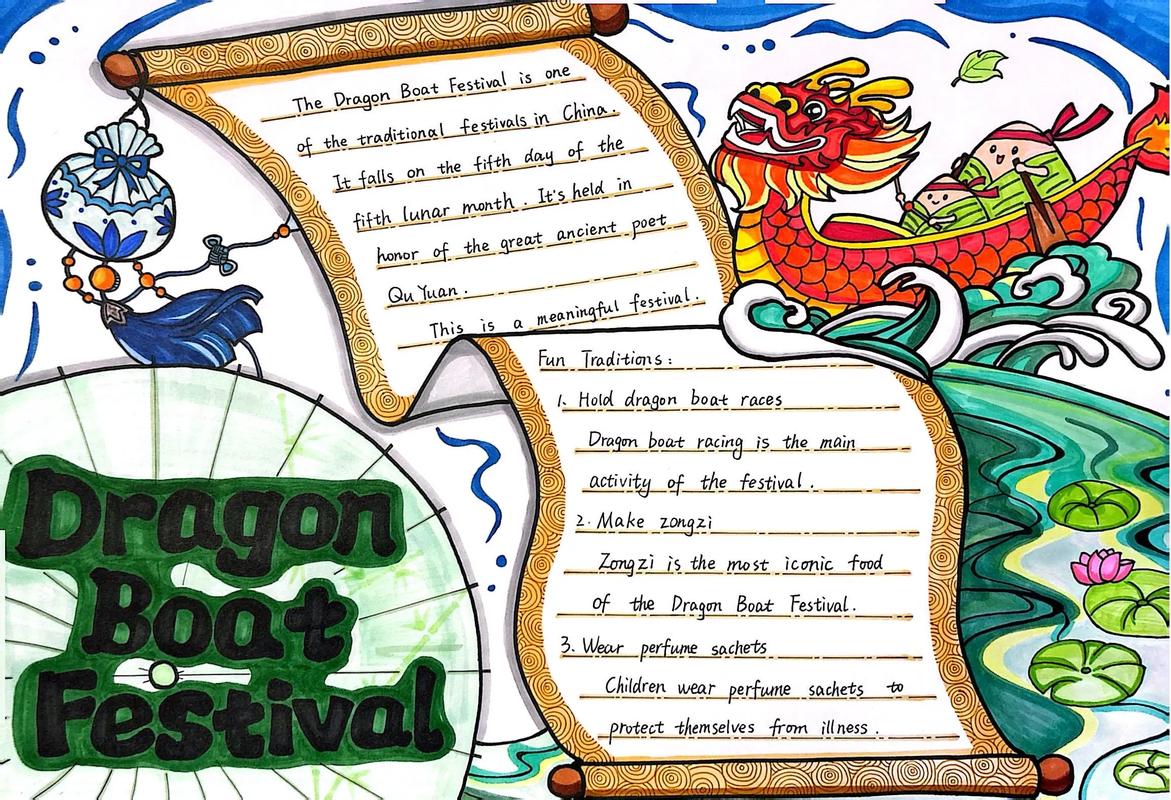 The Dragon Boat Festival is one
of the traditional festivals in China.
It falls on the fifth day of the
fifth lunar month. It's held in
honor of the great ancient poet
Qu Yuan.
This is a meaningful festival.
Fun Traditions:
1. Hold dragon boat races
Dragon boat racing is the main
activity of the festival.
2. Make zongzi
Zongzi is the most iconic food
of the Dragon Boat Festival.
3. Wear perfume sachets
Children wear perfume sachets to
protect themselves from illness.
Dragon
Boat
Festival